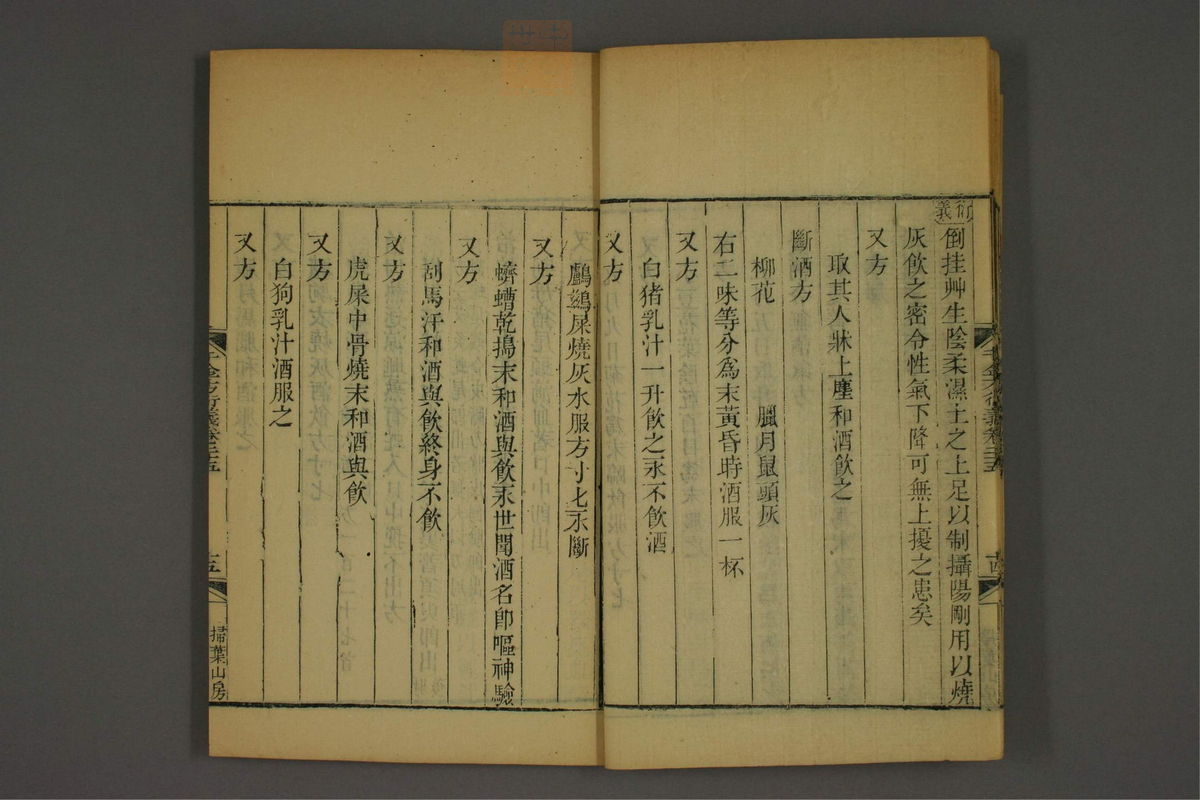 衍義
倒挂艸生陰柔濕土之上足以制攝陽剛用以燒
灰飲之密令性氣下降可無上擾之患矣
又方
取其人牀上塵和酒飲之
斷酒方
柳花 臘月鼠頭灰
右二味等分爲末黃昏時酒服一杯
又方
白猪乳汁一升飲之永不飲酒
又方
鸕鷀屎燒灰水服方寸匕永斷
又方
蠐螬乾搗末和酒與飲永世聞酒名卽嘔神驗
又方
刮馬汗和酒與飲終身不飲
又方
虎屎中骨燒末和酒與飲
又方
白狗乳汁酒服之
又方
千金方衍義卷二十五
十四
千金方衍義卷二十五
十五
掃葉山房